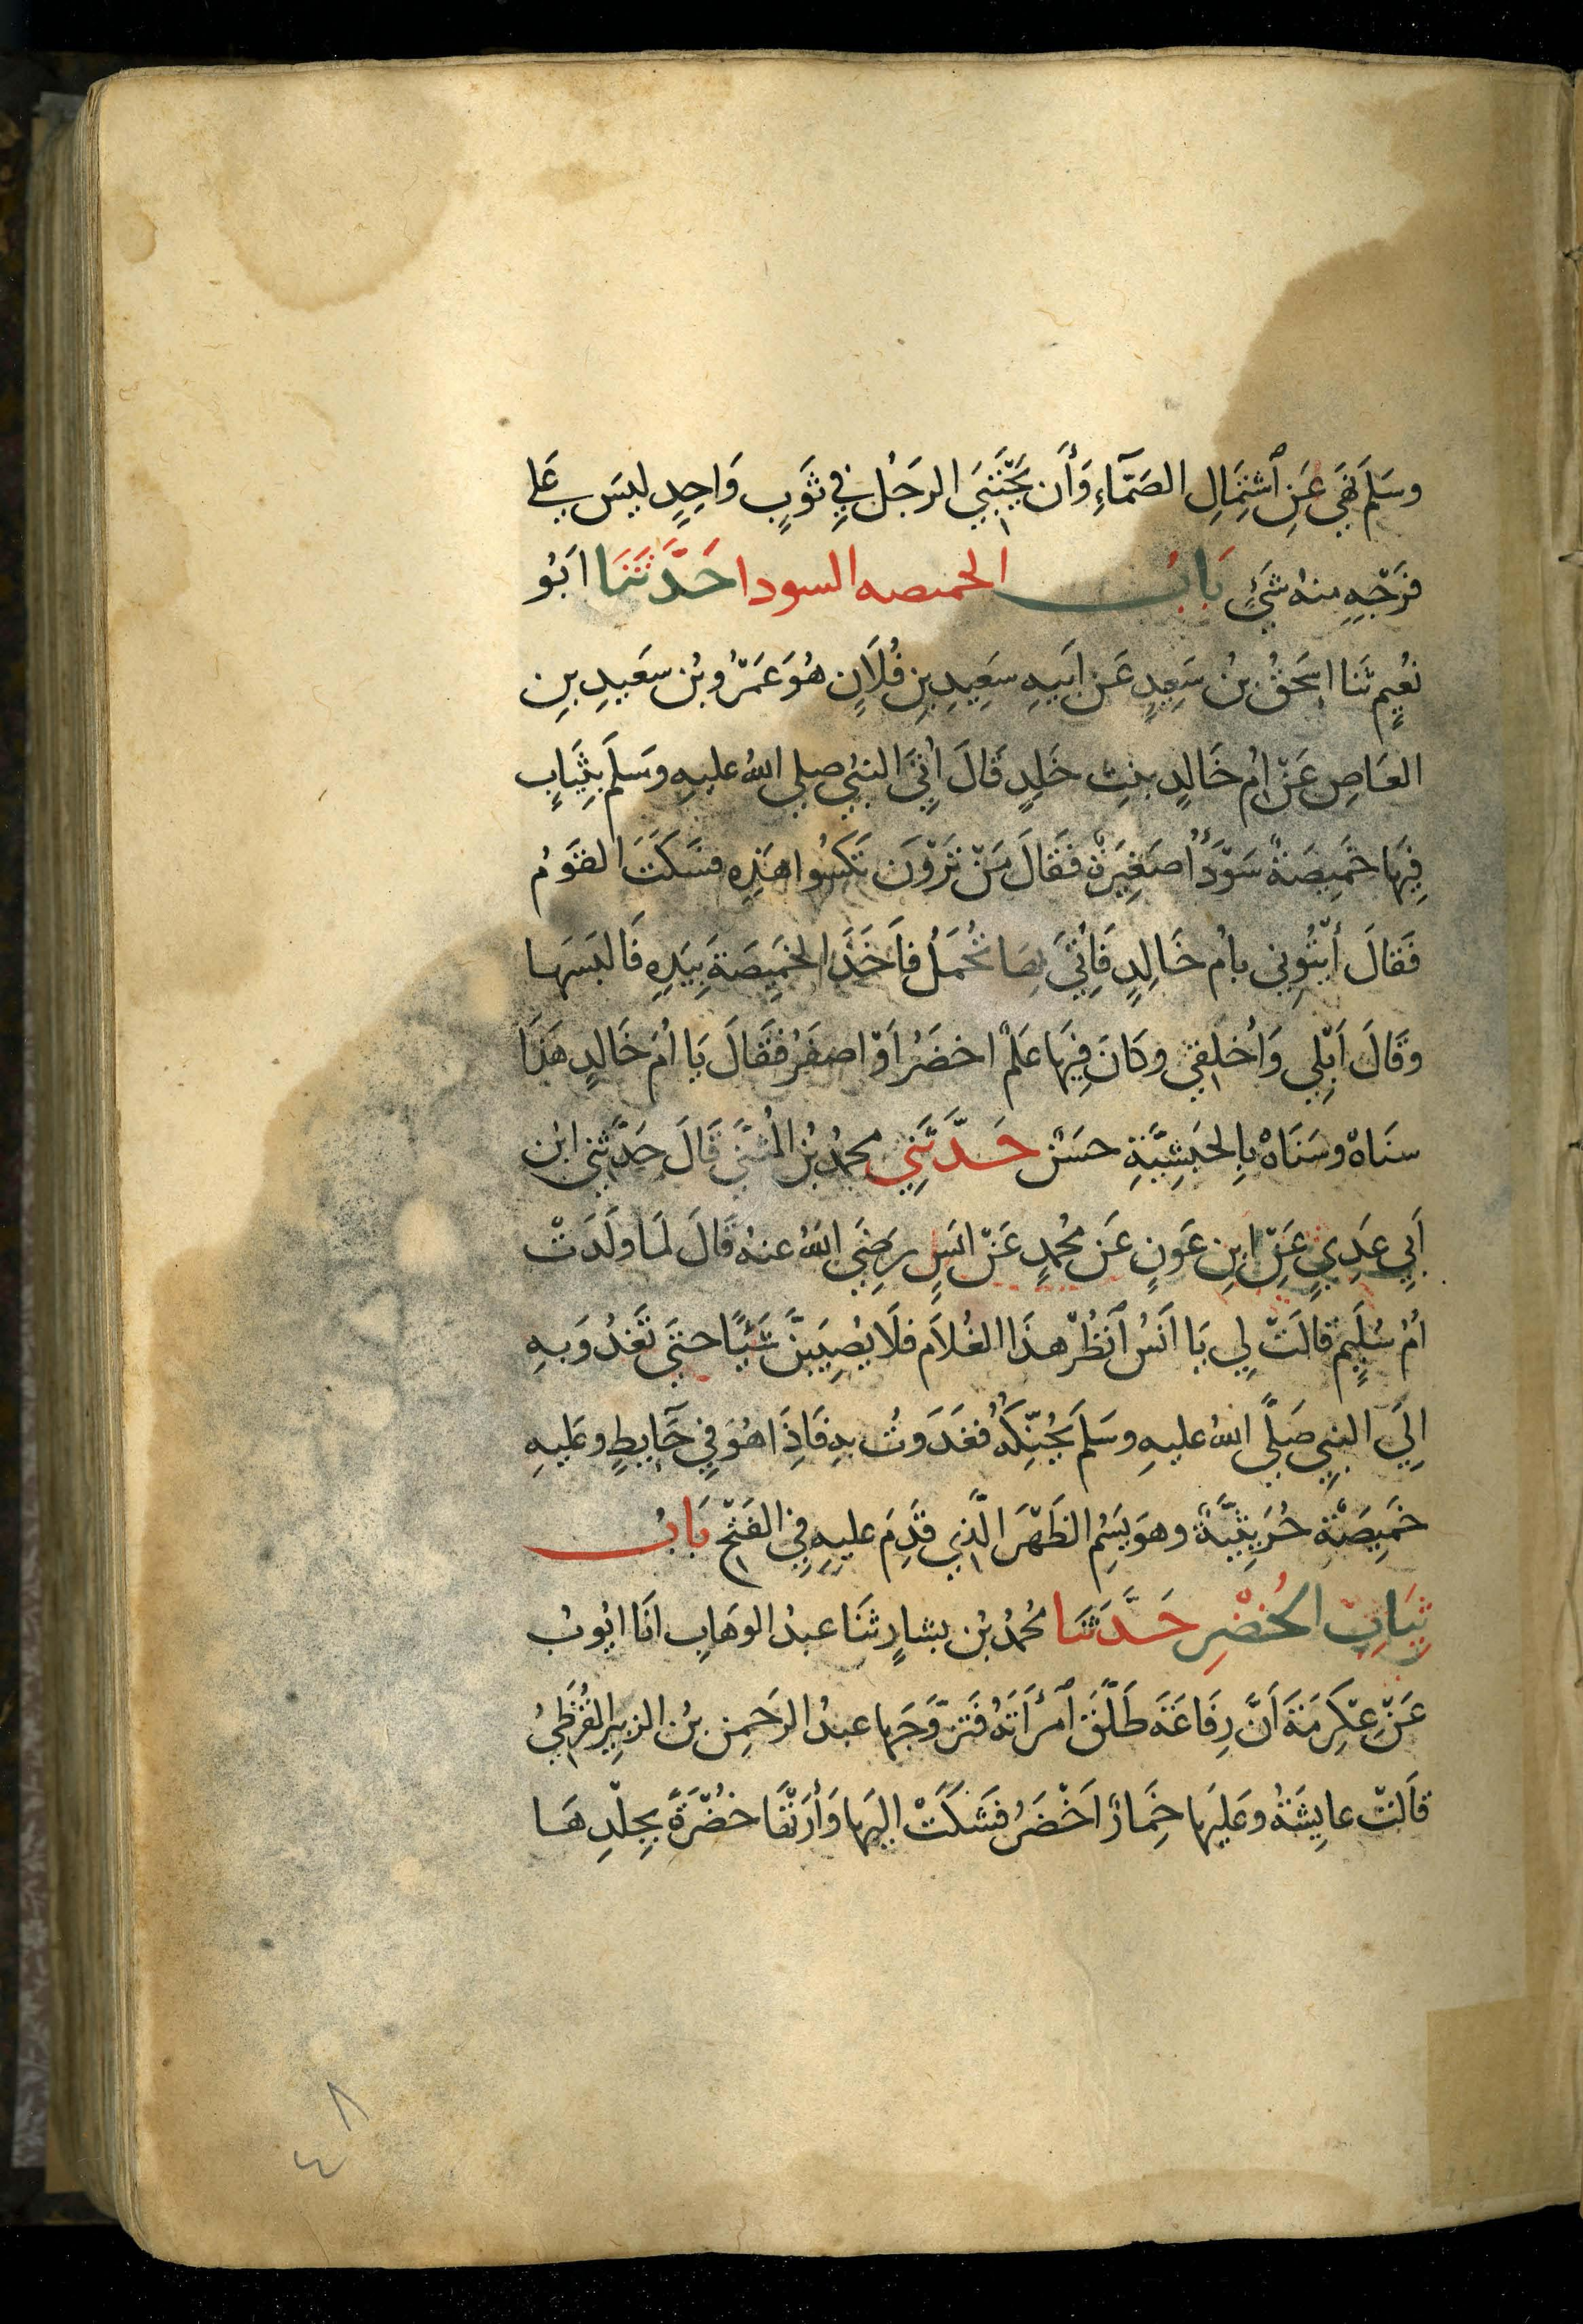 وسَلَم نَهَي عَنِ ٱشتِمَالِ الصَمَّآءِ وَأَن يَحْتَبَي الرجَلُ فِي ثَوبٍ وَاحِدٍ ليسَ عَلي
فرَجِهِ منهُ شَيٌ بَابُ الخميصه السودا حَدَّثَنَا ابُو
نُعَيمٍ ثنَا اسحَقُ بنُ سَعِيدٍ عَن ابَيهِ سَعِيدِ بنِ فُلَانٍ هُوَ عَمْرُو بْن سعَيدِ بنِ
العَاصِ عَنْ ام خَالدٍ بنتِ خَلدٍ قَالَ أُتِيَ النبيُ صلي اللهُ عليهِ وسَلَم بثِيَابٍ
فِيهَا خَميصَةٌ سَوْدَأُ صَغِيرَةٌ فقَالَ مَنْ تَرَوْنَ نَكسُوا هَذِهِ فسَكَتَ القَوْمُ
فَقالَ أيْتُونِي بامُ خَالِدٍ فَاُتِيَ بِهَا تُحْمَلُ فاَخَذَ الخَمِيصَةَ بِيَدِهِ فَالبَسَهَا
وقَالَ اَبْلِي وَأخلِقي وكَانَ فِيهَا عَلَمٌ اخضَرُ اَوْ اصفَرُ فقَالَ يَا اُمَ خَالدٍ هَذَا
سنَاهْ وسَنَاهْ بِالحَبَشِيَّةِ حسَنٌ حَدَّثَنِي محمدُ بْنُ المُثنَّي قَالَ حَدَّثني ابْن
اَبِي عَدِيٍ عَنِ ابنِ عَونٍ عَن محُمدٍ عَنْ انَسٍ رضَيَ اللهُ عنهُ قَالَ لمَا ولَدَتْ
اُمُ سُلَيمٍ قَالَتْ لِي يَا اَنَسُ ٱنْظُرْ هذَا الغُلاَمَ فلَا يُصِيبَنَّ شَيًا حتيَ تَغدُوَ بهِ
اِلَي النبيِ صَلَّي اللهُ عليهِ وسَلَم يُحَنِّكُهُ فغَدَوتُ بهِ فَاِذَا هُوَ فِي حَآيِطٍ وعَليهِ
خَمِيصَةٌ حُرَيثيَّةٌ وهوَ يَسِمُ الظَهْرَ الَّذِي قَدِمَ عليهِ فِي الفَتْحِ بَابُ
ثِيَابِ الخُضْرِ حَدَّثنَا مُحمدُ بْن بشارٍ ثنَا عبدُ الوهَابِ انَا ايُوبُ
عَنْ عِكرِمَةَ اَنَّ رِفَاعَةَ طَلَّقَ ٱمرأَتَهُ فَتزَوَّجَهَا عبدُ الرحَمنِ بْن الزبِيرِ القُرَظِيُ
قاَلتْ عايِشَةُ وعَلَيهَا خِمَارٌ اَخْضَرُ فشَكَتْ اليهَا وَأرَتْهَا خُضْرَةً بِجلْدِهَا
٤٨